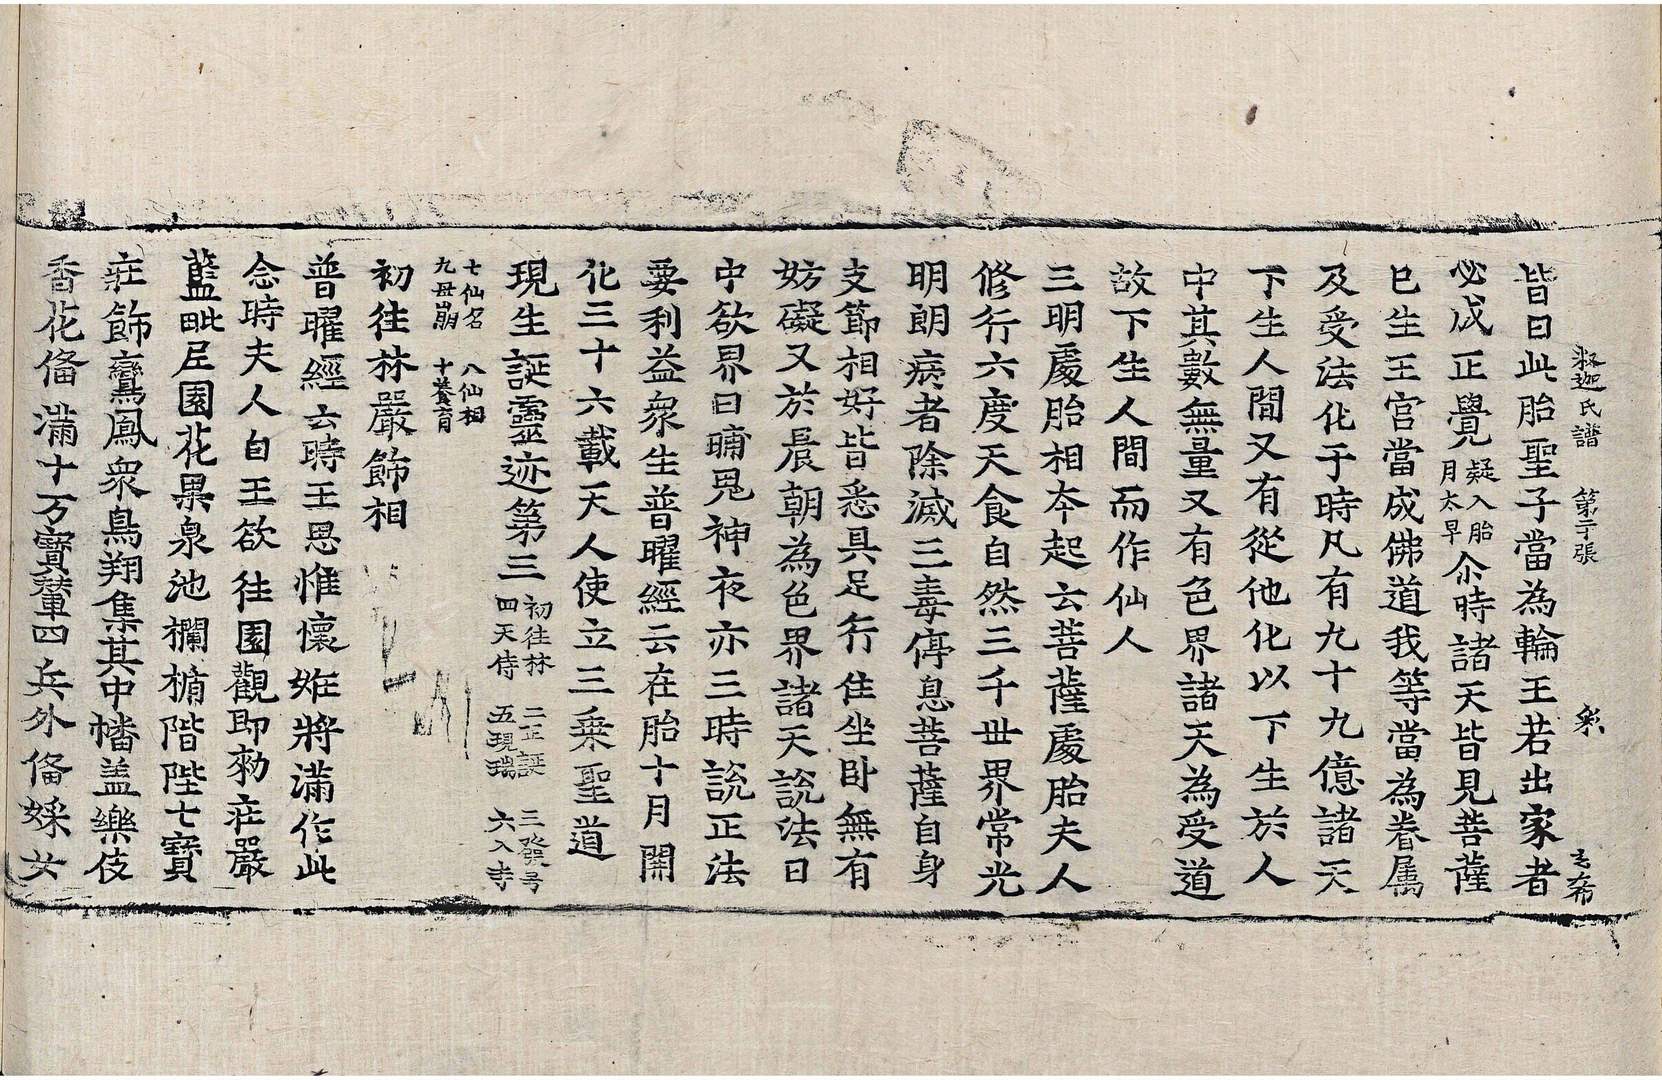 釋迦氏譜 第二十張 彩 玄希
皆曰此胎聖子當為輪王若出家者
必成正覺疑入胎月太早尒時諸天皆見菩薩
已生王宮當成佛道我等當為眷属
及受法化于時凡有九十九億諸天
下生人間又有從他化以下生於人
中其數無量又有色界諸天為受道
故下生人間而作仙人
三明處胎相本起云菩薩處胎夫人
修行六度天食自然三千世界常光
明朗病者除滅三毒停息菩薩自身
支節相好皆悉具足行住坐卧無有
妨礙又於晨朝為色界諸天說法日
中欲界日晡鬼神夜亦三時說正法
要利益衆生普曜經云在胎十月開
化三十六載天人使立三乘聖道
現生誕靈迹第三 初往林 二正誕 三發号
四天侍 五現瑞 六入寺
七仙名 八仙相
九母崩 十養育
初往林嚴飾相
普曜經云時王恩惟懷姙將滿作此
念時夫人自王欲往園觀即勑莊嚴
藍毗尼園花果泉池欄楯階陛七寶
莊飾鸞鳳衆鳥翔集其中幡盖樂伎
香花俻滿十万寶輦四兵外俻婇女